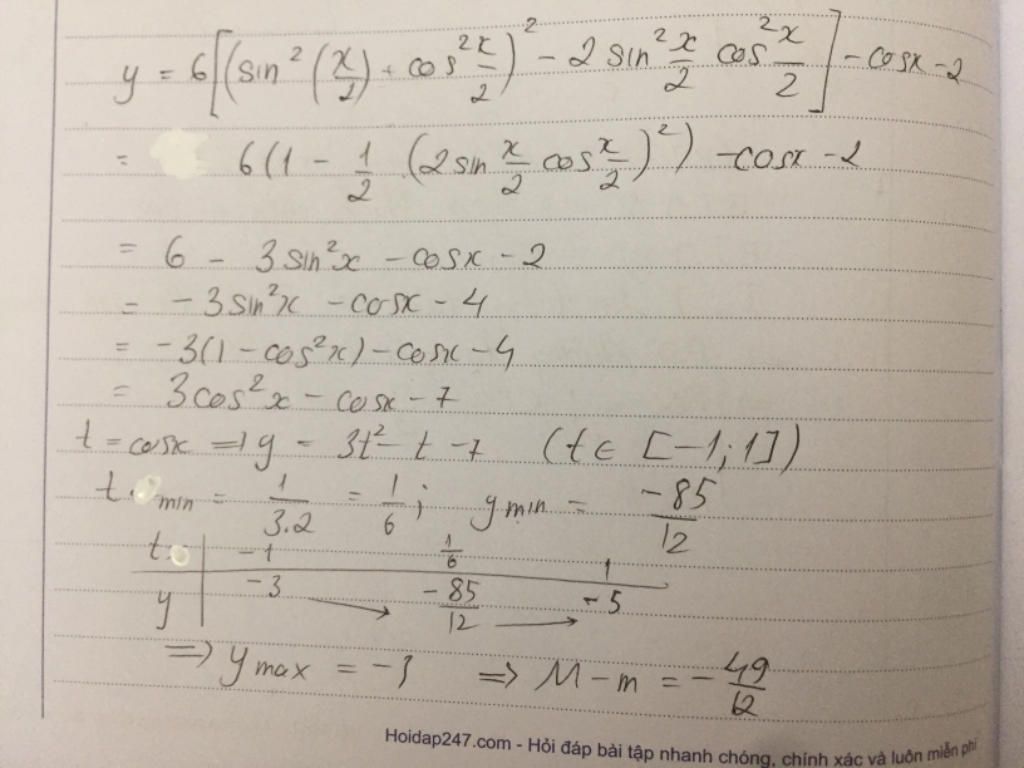 y = 6[(sin²(x/2) + cos² x/2)² - 2 sin² x/2 cos² x/2] - cosx - 2
= 6(1 - 1/2 (2sin x/2 cos x/2)²) - cosx - 2
= 6 - 3sin²x - cosx - 2
= -3sin²x - cosx - 4
= -3(1 - cos²x) - cosx - 4
= 3cos²x - cosx - 7
t = cosx => y = 3t² - t - 7 (t ∈ [-1; 1])
t min = 1/3.2 = 1/6; y min = -85/12
t -1 1/6 1
y -3 -85/12 -5
=> y max = -3 => M - m = -49/12
Hoidap247.com - Hỏi đáp bài tập nhanh chóng, chính xác và luôn miễn phí